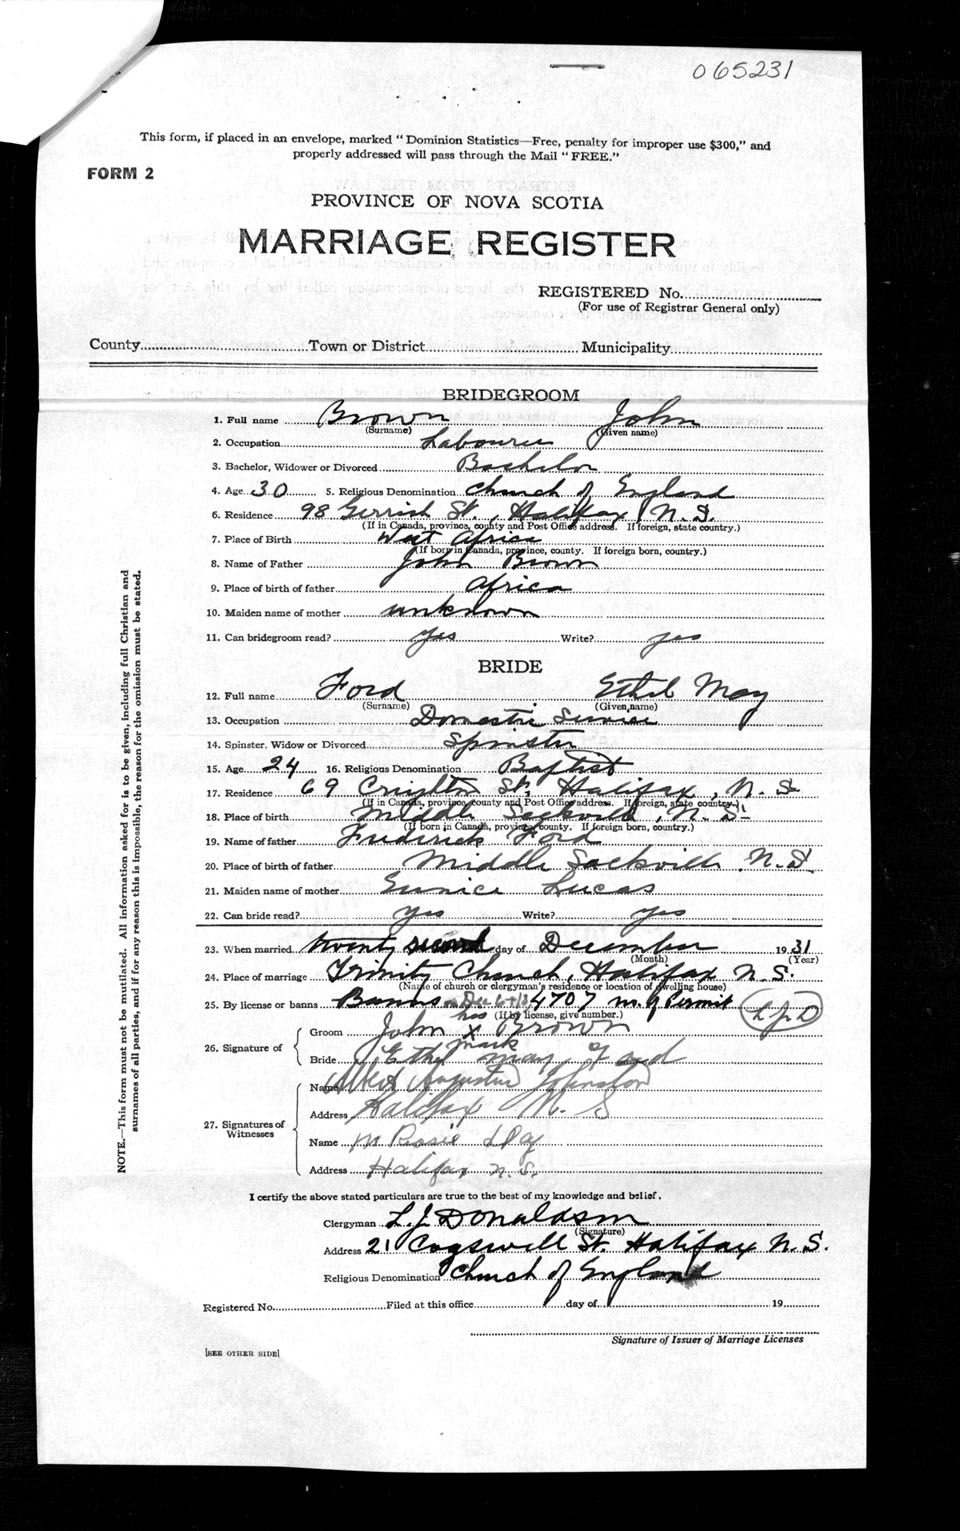 065231
This form, if placed in an envelope, marked "Dominion Statistics—Free, penalty for improper use $300," and
properly addressed will pass through the Mail "FREE."
FORM 2
PROVINCE OF NOVA SCOTIA
MARRIAGE REGISTER
REGISTERED No.
(For use of Registrar General only)
County Town or District Municipality
BRIDEGROOM
1. Full name Brown John
(Surname) (Given name)
2. Occupation Labourer
3. Bachelor, Widower or Divorced Bachelor
4. Age 30 5. Religious Denomination Church of England
6. Residence 98 Gerrish St., Halifax, N.S.
(If in Canada, province, county and Post Office address. If foreign, state country.)
7. Place of Birth West Africa
(If born in Canada, province, county. If foreign born, country.)
8. Name of Father John Brown
9. Place of birth of father Africa
10. Maiden name of mother unknown
11. Can bridegroom read? yes Write? yes
BRIDE
12. Full name Ford Ethel May
(Surname) (Given name)
13. Occupation Domestic Service
14. Spinster, Widow or Divorced Spinster
15. Age 24 16. Religious Denomination Baptist
17. Residence 69 Creighton St, Halifax, N.S.
(If in Canada, province, county and Post Office address. If foreign, state country.)
18. Place of birth Middle Sackville, N.S.
(If born in Canada, province, county. If foreign born, country.)
19. Name of father Frederick Ford
20. Place of birth of father Middle Sackville N.S.
21. Maiden name of mother Eunice Lucas
22. Can bride read? yes Write? yes
23. When married twenty second day of December 1931
(Month) (Year)
24. Place of marriage Trinity Church, Halifax N.S.
(Name of church or clergyman's residence or location of dwelling house)
25. By license or banns Banns Dec 6+13 4707 Permit LJD
(If by license, give number.)
26. Signature of
Groom John x Brown
his mark
Bride Ethel may Ford
27. Signatures of Witnesses
Name Augustus Johnston
Address Halifax N.S
Name M Rosie
Address Halifax N.S.
I certify the above stated particulars are true to the best of my knowledge and belief.
Clergyman L.J. Donaldson
(Signature)
Address 21 Cogswell St. Halifax N.S.
Religious Denomination Church of England
Registered No. Filed at this office day of 19
Signature of Issuer of Marriage Licenses
[SEE OTHER SIDE]
NOTE.—This form must not be mutilated. All information asked for is to be given, including full Christian and
surnames of all parties, and if for any reason this is impossible, the reason for the omission must be stated.